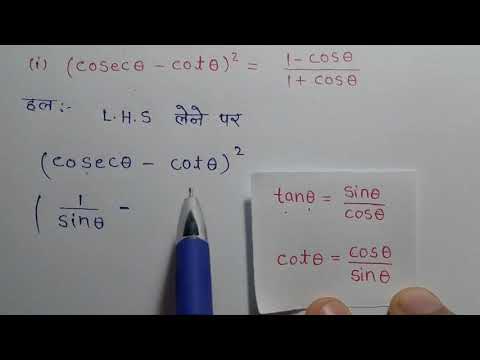 (i) (cosecθ - cotθ)² = 1-cosθ / 1+cosθ
हल:- L.H.S लेने पर
(cosecθ - cotθ)²
( 1/sinθ -
tanθ = sinθ/cosθ
cotθ = cosθ/sinθ